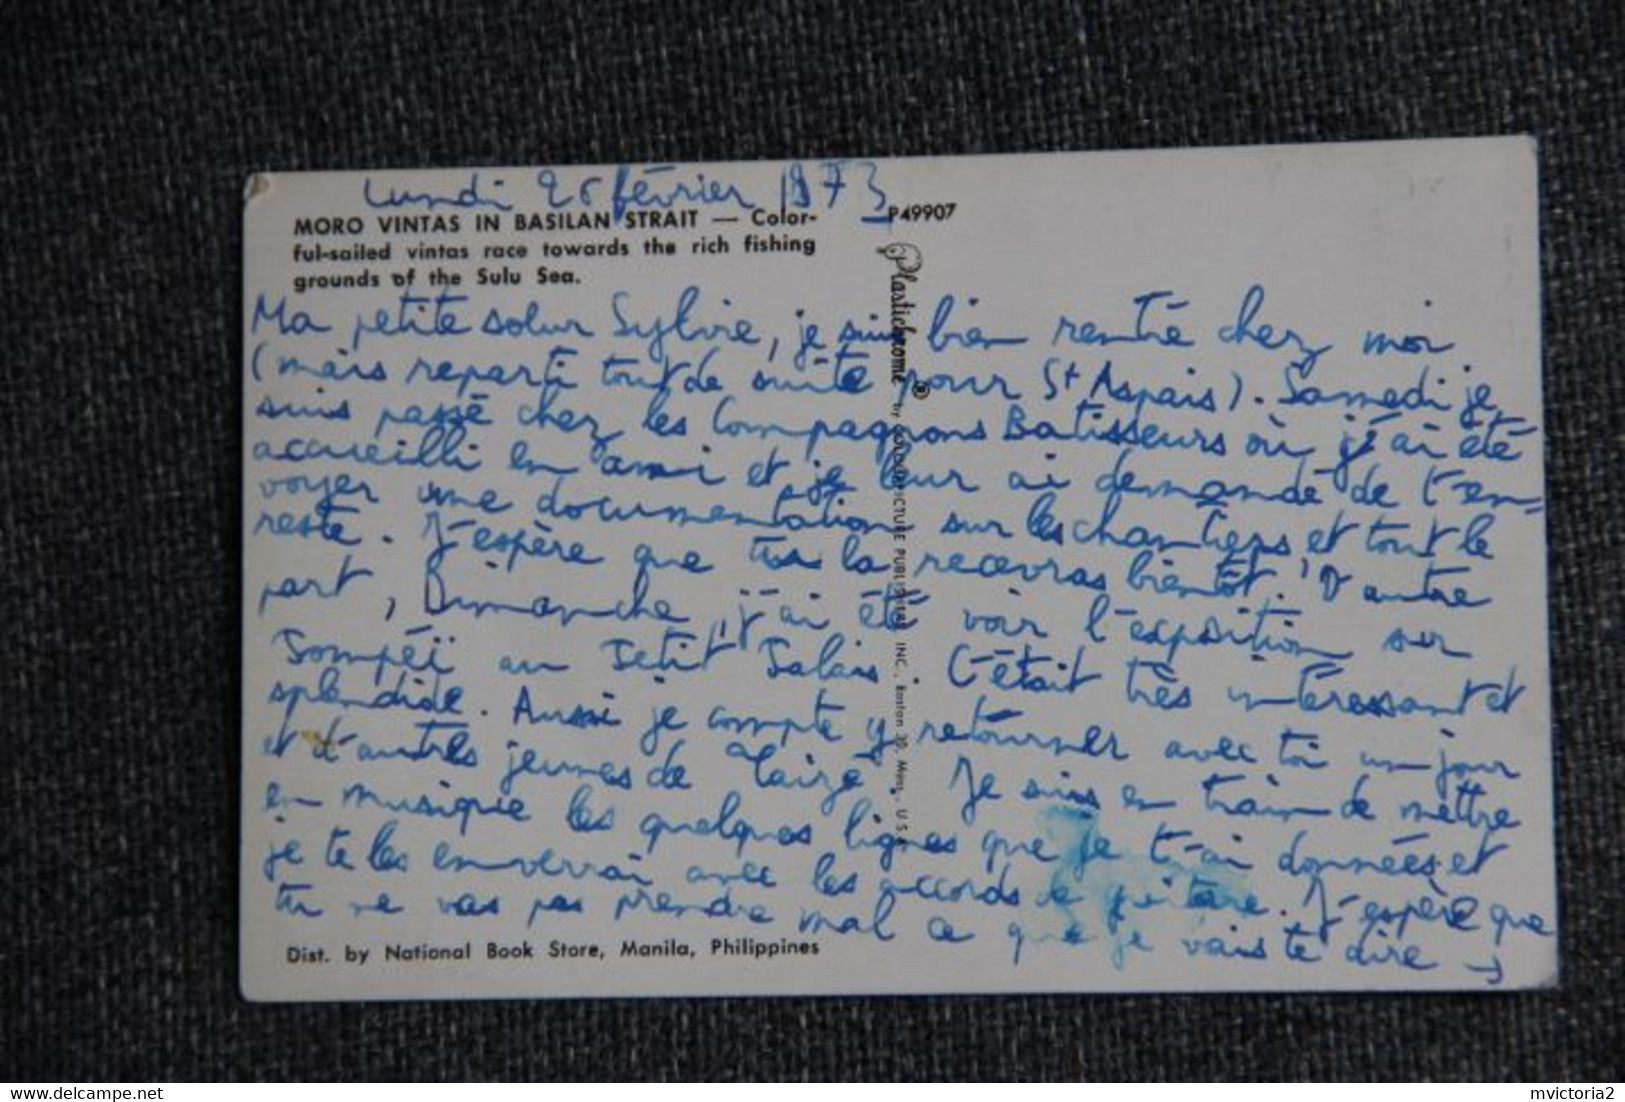 Lundi 26 février 1973
MORO VINTAS IN BASILAN STRAIT — Color-
ful-sailed vintas race towards the rich fishing
grounds of the Sulu Sea.
P49907
Plastichrome ®
PICTURE PUBLISHERS, INC., Boston 30, Mass., U.S.A.
Ma petite soeur Sylvie, je suis bien rentré chez moi
(mais reparti tout de suite pour St Aspais). Samedi je
suis passé chez les Compagnons Batisseurs où j'ai été
accueilli en ami et je leur ai demandé de t'en-
voyer une documentation sur les chantiers et tout le
reste. J'espère que tu la recevras bientôt. D'autre
part, Dimanche, j'ai été voir l'exposition sur
Pompéï au Petit Palais. C'était très intéressant et
splendide. Aussi je compte y retourner avec toi un jour
et d'autres jeunes de "Taizé". Je suis en train de mettre
en musique les quelques lignes que je t'ai données et
je te les enverrai avec les accords de guitare. J'espère que
tu ne vas pas prendre mal ce que je vais te dire →
Dist. by National Book Store, Manila, Philippines
mvictoria2